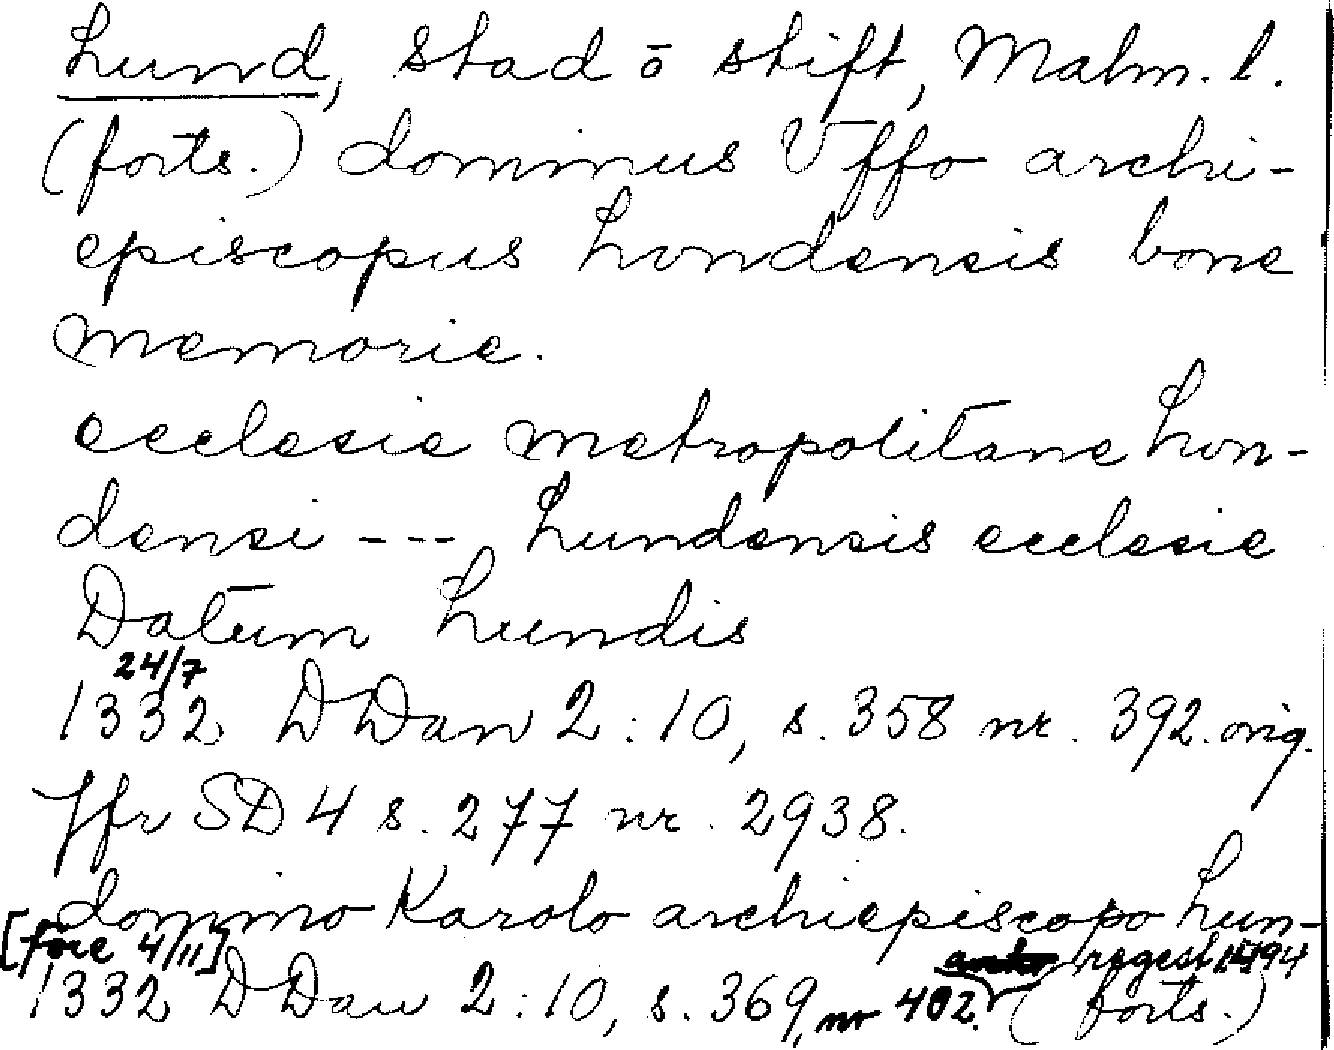 Lund, stad ō stift, Malm. l.
(forts.) dominus Vffo archi-
episcopus Lvndensis bone
memorie.
ecclesie metropolitane Lvn-
densi --- Lundensis ecclesie
Datum Lundis
24/7
1332 DDan 2:10, s. 358 nr. 392. orig.
Jfr SD 4 s. 277 nr. 2938.
domino Karolo archiepiscopo Lun-
[före 4/11] regest 1494
1332 DDan 2:10, s. 369, nr 402. (forts.)